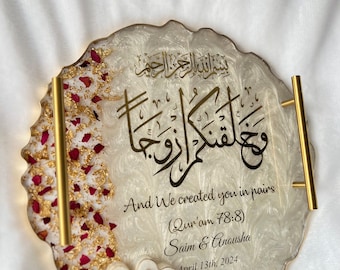 بسم الله الرحمن الرحيم
وخلقنكم ازوجا
And We created you in pairs
(Qur'am 78:8)
Saim & Anousha
April 13th, 2024